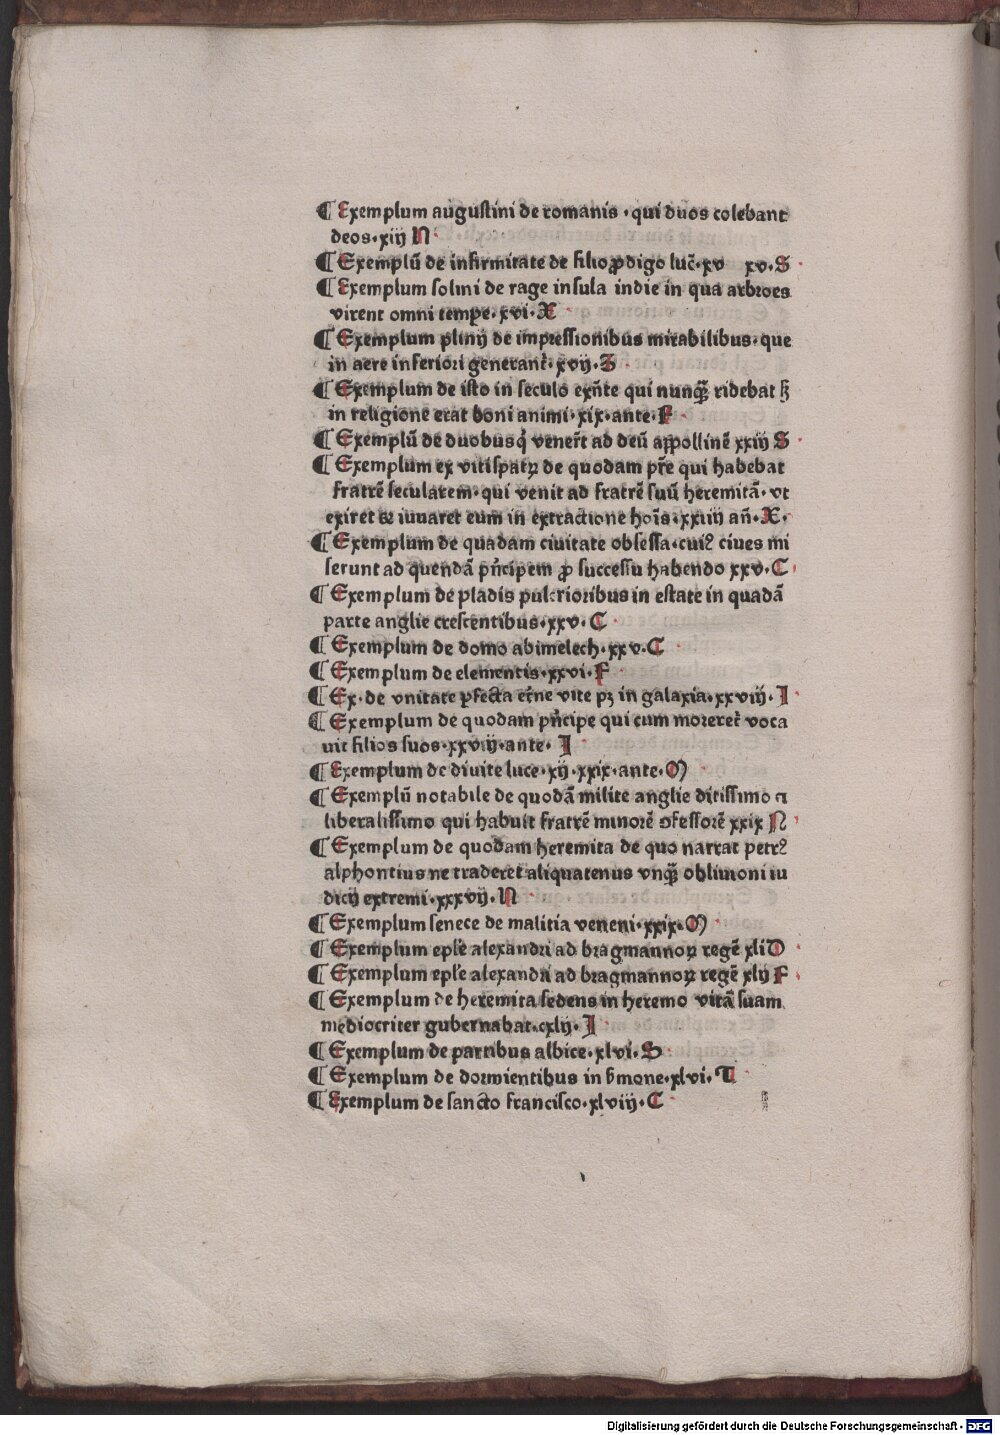 ¶ Exemplum augustini de romanis · qui duos colebant
deos · xiij N
¶ Exemplū de infirmitate de filio ꝓdigo luc̄ · xv xv · S
¶ Exemplum solini de rage insula indie in qua arbroes
virent omni tempe · xvi · X
¶ Exemplum plinij de impressionibus mirabilibus · que
in aere inferiori generant̄ · xvij ·
¶ Exemplum de isto in seculo exn̄te qui nunqꝫ ridebat sꝫ
in religione erat boni animi · xix · ante · F
¶ Exemplū de duobus q̇ vener̄t ad deū appollinē xxiij S
¶ Exemplum ex vitis patꝝ de quodam pr̄e qui habebat
fratrē secularem · qui venit ad fratrē suū heremitā · vt
exiret & iuuaret eum in extractione hoīs · xxiiij an̄ · X ·
¶ Exemplum de quadam ciuitate obsessa · cuiꝰ ciues mi
serunt ad quendā pn̄cipem ꝓ successu habendo xxv · C
¶ Exemplum de pladis pulcrioribus in estate in quadā
parte anglie crescentibus · xxv · C
¶ Exemplum de domo abimelech · xxv · C
¶ Exemplum de elementis · xxvi · F
¶ Ex · de vnitate ꝑfecta et̄ne vite pꝫ in galaxia · xxviij · I
¶ Exemplum de quodam pn̄cipe qui cum moreret̄ voca
uit filios suos · xxviij · ante · I
¶ Exemplum de diuite luce · xij · xxix · ante · M
¶ Exemplū notabile de quodā milite anglie ditissimo ꞇ
liberalissimo qui habuit fratrē minorē ꝯfessorē xxix N
¶ Exemplum de quodam heremita de quo narrat petrꝰ
alphontius ne traderet aliquatenus vnqꝫ obliuioni iu
dicij extremi · xxxvij · N
¶ Exemplum senece de malitia veneni · xxix · M
¶ Exemplum epl̄e alexandri ad bragmannoꝝ regē xli D
¶ Exemplum epl̄e alexandri ad bragmannoꝝ regē xlij F
¶ Exemplum de heremita sedens in heremo vitā suam
mediocriter gubernabat · cxlij · I
¶ Exemplum de partibus albice · xlvi · S
¶ Exemplum de dormientibus in s̄mone · xlvi · T
¶ Exemplum de sancto francisco · xlviij · C
Digitalisierung gefördert durch die Deutsche Forschungsgemeinschaft - DFG